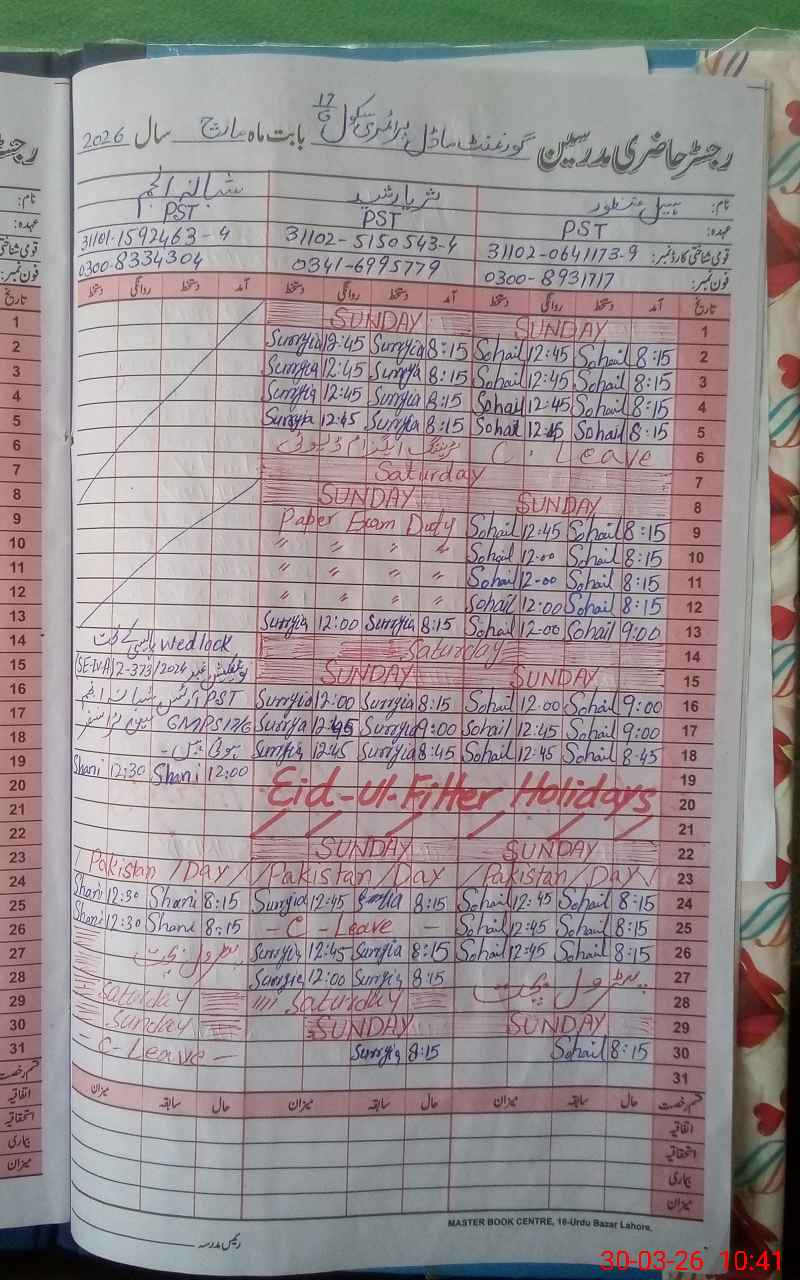 رجسٹر حاضری مدرسین گورنمنٹ ماڈل پرائمری سکول 17/G بابت ماہ مارچ سال 2026
نام: سہیل منظور ثریا رشید شبانہ انجم
عہدہ: PST PST PST
قومی شناختی کارڈ نمبر: 31102-0641173-9 31102-5150543-4 31101-1592463-4
فون نمبر: 0300-8931717 0341-6995779 0300-8334304
تاریخ آمد دستخط روانگی دستخط آمد دستخط روانگی دستخط آمد دستخط روانگی دستخط
SUNDAY SUNDAY 1
Surryia 12:45 Surryia 8:15 Sohail 12:45 Sohail 8:15 2
Surryia 12:45 Surryia 8:15 Sohail 12:45 Sohail 8:15 3
Surryia 12:45 Surryia 8:15 Sohail 12:45 Sohail 8:15 4
Surryia 12:45 Surryia 8:15 Sohail 12:45 Sohail 8:15 5
ایگزام ڈیوٹی C. Leave 6
Saturday 7
SUNDAY SUNDAY 8
Paper Exam Duty Sohail 12:45 Sohail 8:15 9
" " " " Sohail 12:00 Sohail 8:15 10
" " " " Sohail 12:00 Sohail 8:15 11
" " " " Sohail 12:00 Sohail 8:15 12
Surryia 12:00 Surryia 8:15 Sohail 12:00 Sohail 9:00 13
wedlock Saturday 14
(SE-IV-A) 2-373/2024 SUNDAY SUNDAY 15
PST Surryia 12:00 Surryia 8:15 Sohail 12:00 Sohail 9:00 16
GMPS 17/G Surryia 12:45 Surryia 9:00 Sohail 12:45 Sohail 9:00 17
Surryia 12:45 Surryia 8:45 Sohail 12:45 Sohail 8:45 18
Shani 12:30 Shani 12:00 19
Eid-ul-Fitter Holidays 20
21
SUNDAY SUNDAY 22
/ Pakistan / Day / / Pakistan / Day / Pakistan / Day \/ 23
Shani 12:30 Shani 8:15 Surryia 12:45 Surryia 8:15 Sohail 12:45 Sohail 8:15 24
Shani 12:30 Shani 8:15 - C - Leave - Sohail 12:45 Sohail 8:15 25
پٹرول بچت Surryia 12:45 Surryia 8:15 Sohail 12:45 Sohail 8:15 26
Surryia 12:00 Surryia 8:15 پٹرول بچت 27
Saturday Saturday 28
Sunday SUNDAY SUNDAY 29
- C - Leave - Surryia 8:15 Sohail 8:15 30
31
قسم رخصت حال سابقہ میزان حال سابقہ میزان حال سابقہ میزان
اتفاقیہ
استحقاقیہ
بیماری
میزان
MASTER BOOK CENTRE, 16-Urdu Bazar Lahore.
رئیس مدرسہ
رجسٹ
نام:
عہدہ:
قومی شناختی
فون نمبر:
تاریخ
1
2
3
4
5
6
7
8
9
10
11
12
13
14
15
16
17
18
19
20
21
22
23
24
25
26
27
28
29
30
31
قسم رخصت
اتفاقیہ
استحقاقیہ
بیماری
میزان
30-03-26 10:41